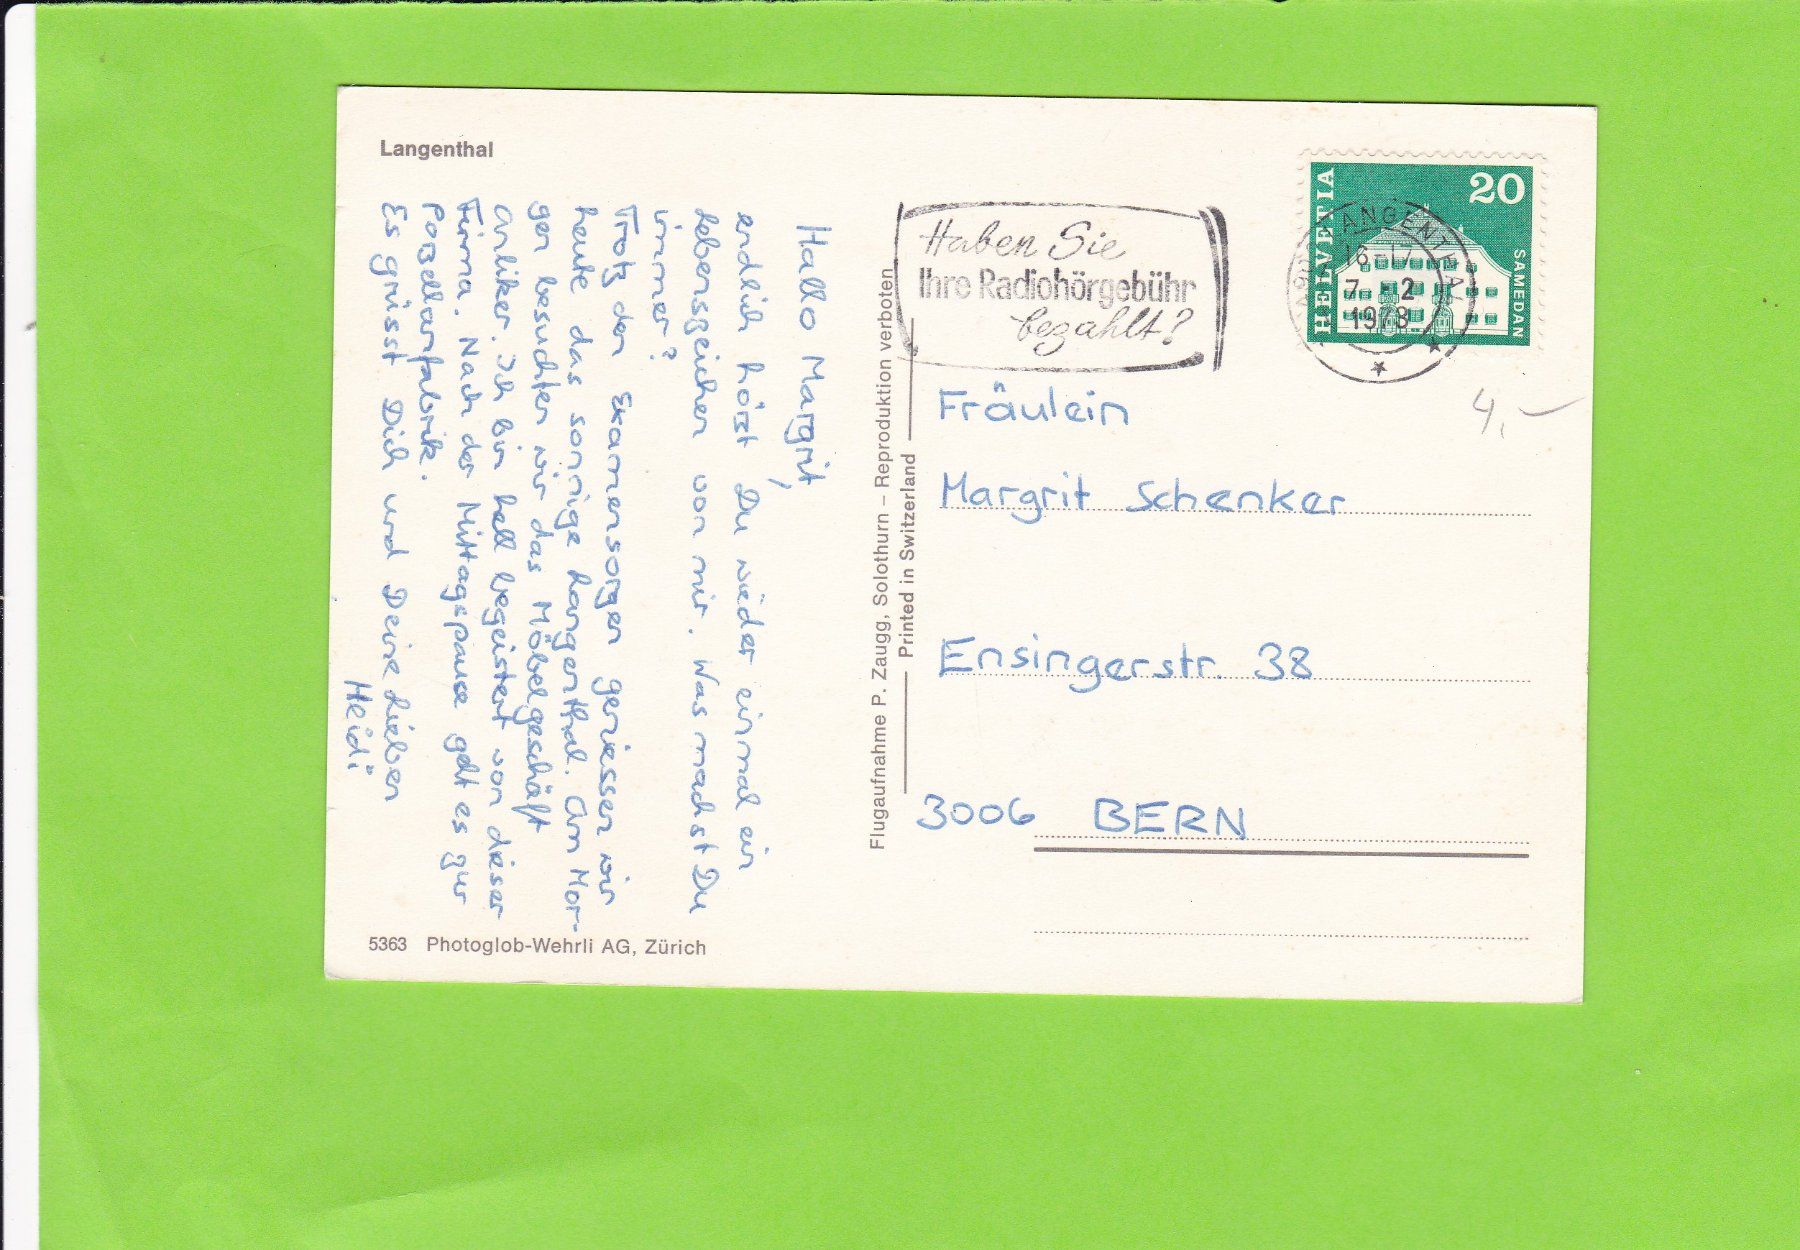 Langenthal
Hallo Margrit,
endlich hörst Du wieder einmal ein
Lebenszeichen von mir. Was machst Du
immer?
Trotz den Examensorgen geniessen wir
heute das sonnige Langenthal. Am Mor-
gen besuchten wir das Möbelgeschäft
Anliker. Ich bin hell begeistert von dieser
Firma. Nach der Mittagspause geht es zur
Porzellanfabrik.
Es grüsst Dich und Deine Lieben
Heidi
5363 Photoglob-Wehrli AG, Zürich
Flugaufnahme P. Zaugg, Solothurn – Reproduktion verboten
Printed in Switzerland
Haben Sie
Ihre Radiohörgebühr
bezahlt?
HELVETIA
20
SAMEDAN
LANGENTHAL
16-17
7.-2
1973
4.–
Fräulein
Margrit Schenker
Ensingerstr. 38
3006 BERN